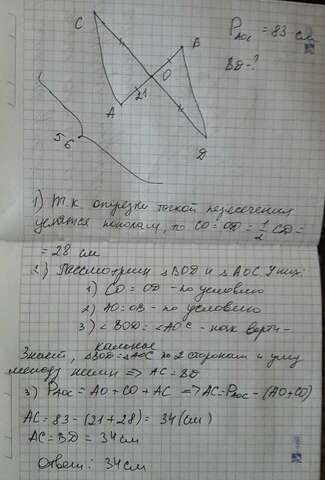 C
P AOC = 83 см
B
BD - ?
O
A
21
56
D
1) Т.к. отрезки точкой пересечения
делятся пополам, то CO = OD = 1/2 CD =
= 28 см
2) Рассмотрим △BOD и △AOC У них:
1) CO = OD - по условию
2) AO = OB - по условию
3) ∠BOD = ∠AOC - как верти-
кальные
Значит, △BOD = △AOC по 2 сторонам и углу
между ними => AC = BD
3) P AOC = AO + CO + AC => AC = P AOC - (AO + CO)
AC = 83 - (21 + 28) = 34 (см)
AC = BD = 34 см
Ответ: 34 см